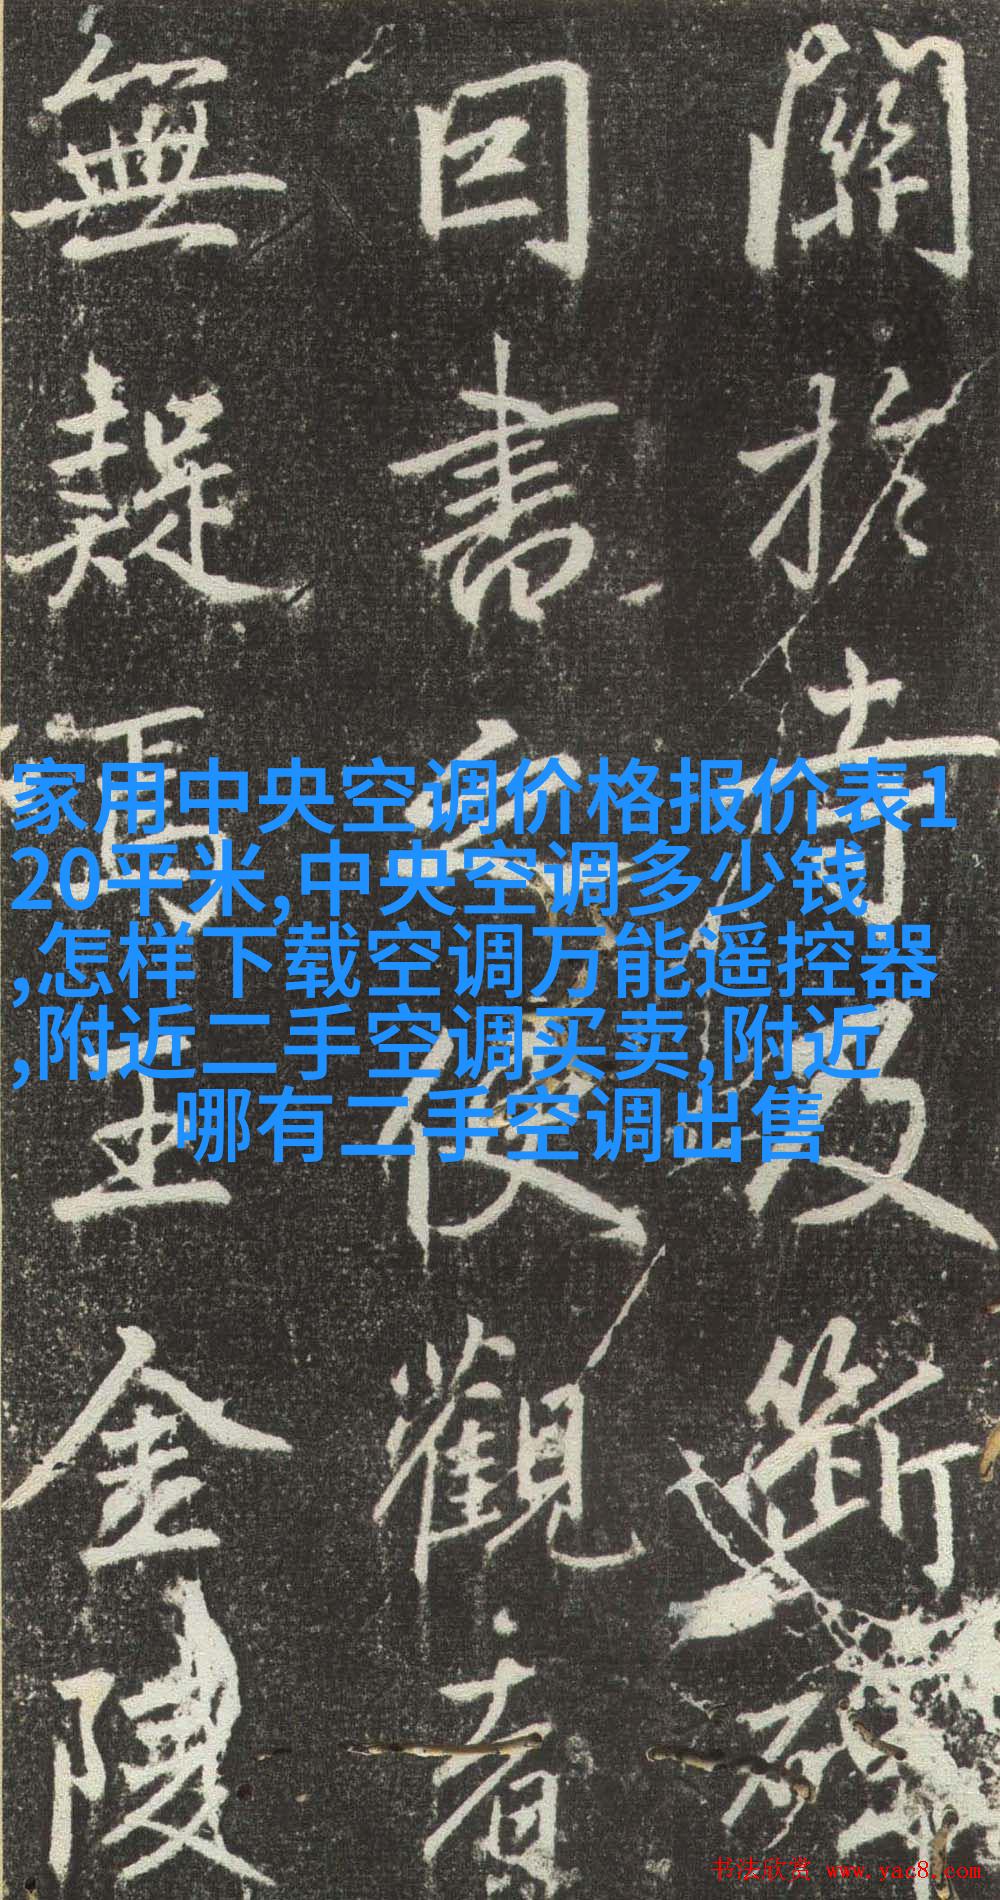 家用中央空调价格报价表1
20平米,中央空调多少钱
,怎样下载空调万能遥控器
,附近二手空调买卖,附近
哪有二手空调出售
關扵寺及斷
曰書後觀者
無疑焉金陵
书法欣赏 www.yac8.com